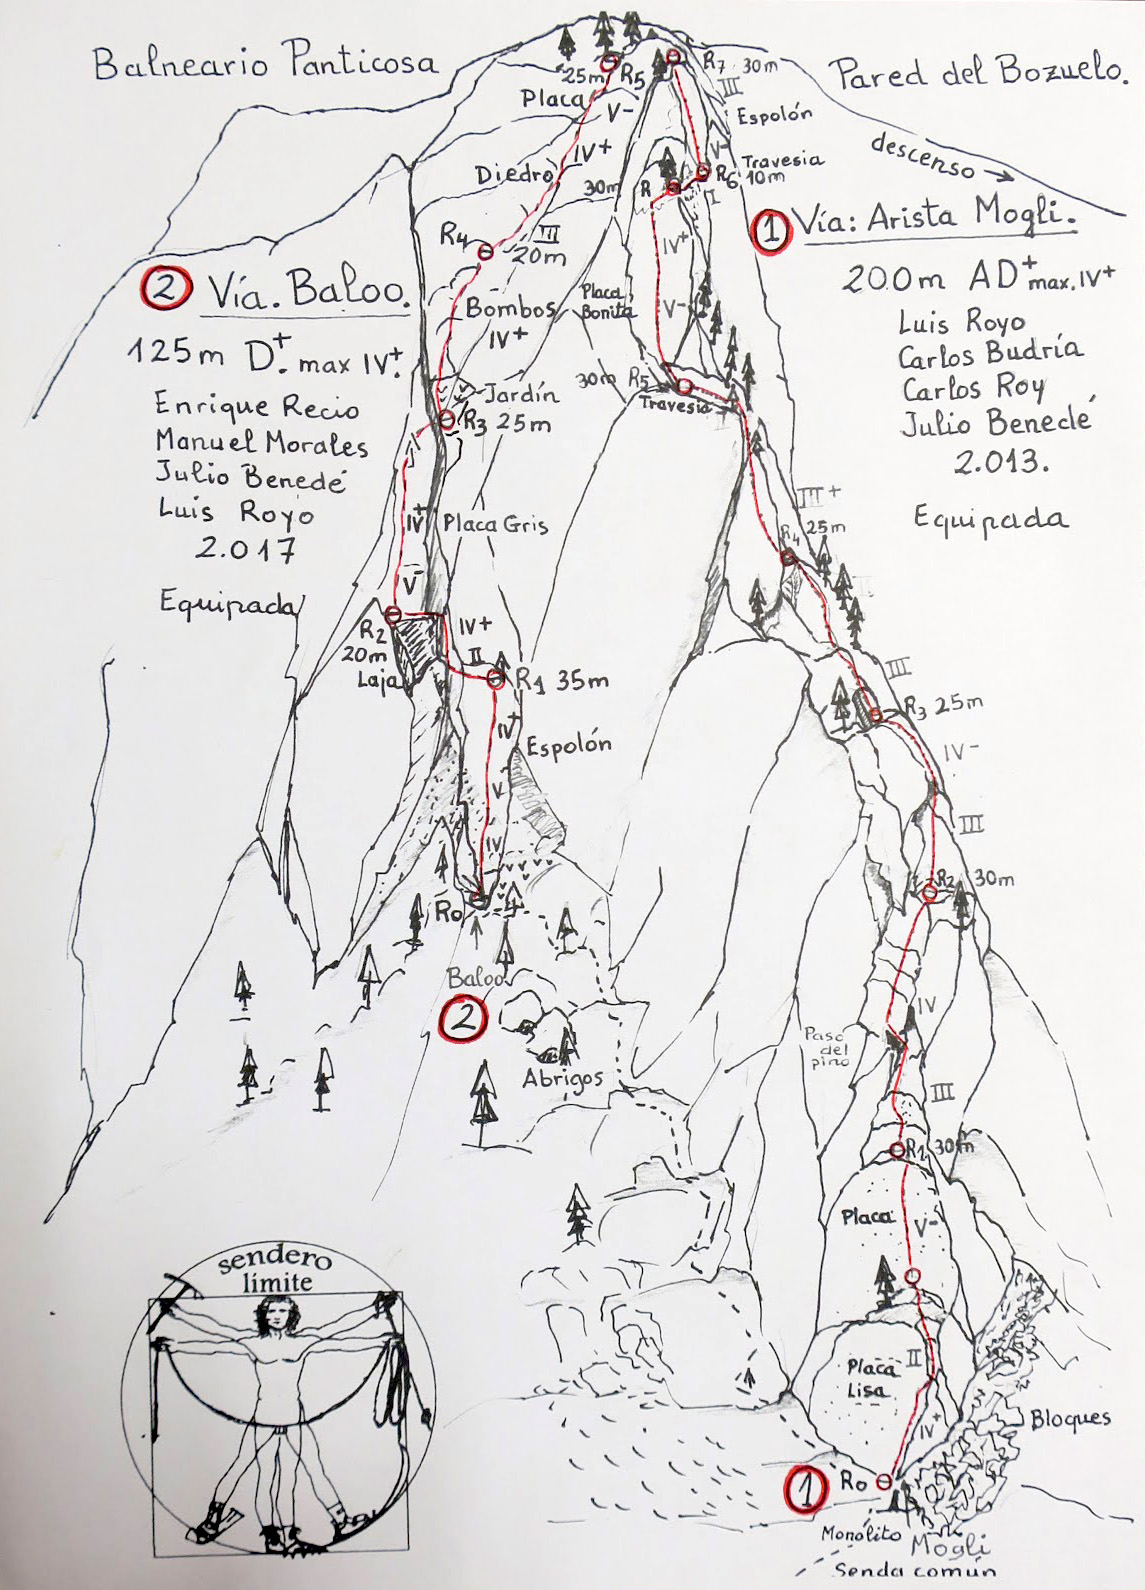 Balneario Panticosa
Pared del Bozuelo.
descenso
① Vía: Arista Mogli.
200m AD+ max. IV+
Luis Royo
Carlos Budría
Carlos Roy
Julio Benedé
2.013.
Equipada
② Vía. Baloo.
125m D+. max IV+.
Enrique Recio
Manuel Morales
Julio Benedé
Luis Royo
2.017
Equipada
25m R5
Placa
V-
IV+
Diedro
R4
III
20m
Bombos
IV+
Jardín
R3 25m
IV+
Placa Gris
V-
R2
20m
Laja
IV+
II
R1 35m
IV+
Espolón
V
IV
Ro
Baloo
②
Abrigos
R7 30m
III
Espolón
V-
Travesia
R6 10m
30m R
I
IV+
Placa
Bonita
V-
30m R5
Travesia
III+
R4 25m
III
R3 25m
IV-
III
R2 30m
IV
Paso
del
pino
III
R1 30m
Placa
V-
II
Placa
Lisa
IV+
Bloques
① Ro
Monolito
Mogli
Senda común
sendero
límite